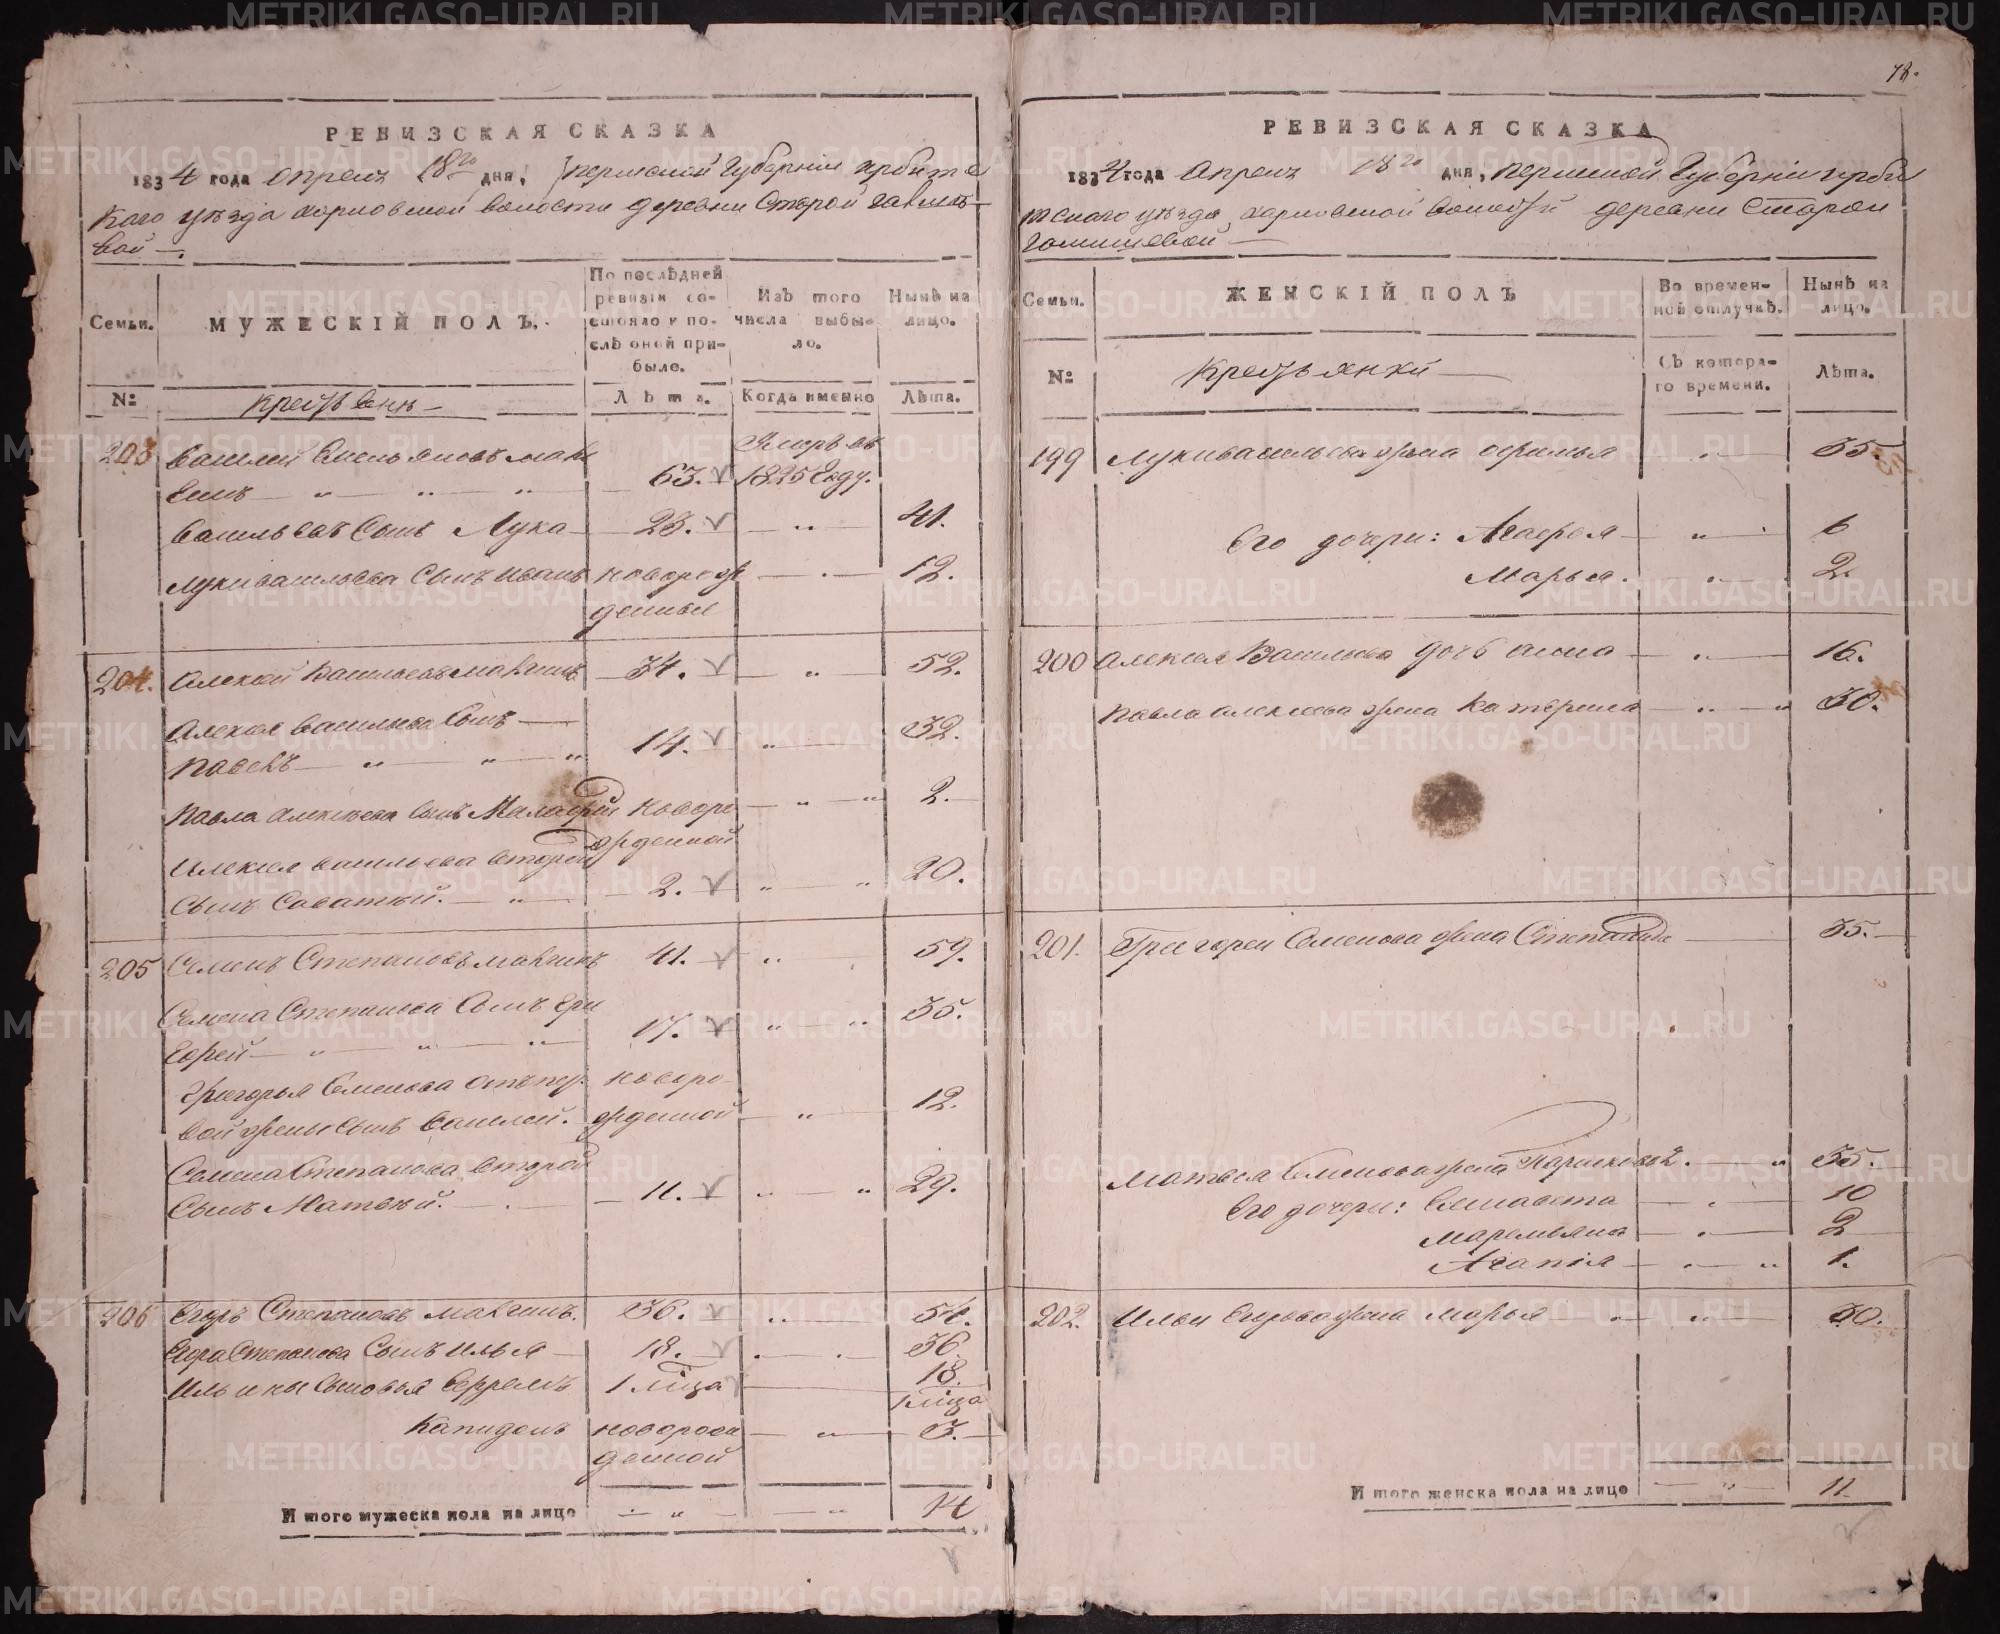 78.
РЕВИЗСКАЯ СКАЗКА
1834 года апреля 18го дня, Пермской Губернии Ирбитс
каго уезда волости деревни Старой
вой —.
Семьи.
МУЖЕСКІЙ ПОЛЪ.
По послѣдней ревизіи состояло и послѣ оной прибыло.
Изъ того числа выбыло.
Нынѣ на лицо.
№
Крестьяне
Лѣта.
Когда именно
Лѣта.
203
Василей Емельяновъ
63.
Умеръ въ 1825 Году.
Васильевъ Сынъ Лука
23.
41.
Луки Васильева Сынъ Иванъ
новорожденныи
12.
204.
Алексей Васильевъ
34.
52.
Алексея Васильева Сынъ Павелъ
14.
32.
Павла Алексеева Сынъ
новорожденной
2.
Алексея Васильева второй
Сынъ Саватий.
2.
20.
205
Семенъ Степановъ
41.
59.
Семена Степанова Сынъ Гри
горей
17.
35.
Григорья Семенова отъ пер
вой жены сынъ Василей.
новорожденной
12.
Семена Степанова второй
Сынъ Матвей.
11.
29.
206
Егоръ Степановъ
36.
54.
Егора Степанова Сынъ Илья
18.
36.
Ильины Сыновья Ефремъ
18.
Капидонъ
новорожденной
3.
И того мужеска пола на лицо
14
РЕВИЗСКАЯ СКАЗКА
1834 года Апреля 18го дня, Пермской Губернии Ирби
тскаго уезда волости деревни Старой
Семьи.
ЖЕНСКІЙ ПОЛЪ
Во временной отлучкѣ.
Нынѣ на лицо.
№
Крестьянки
Съ котораго времени.
Лѣта.
199
Луки Васильева жена Офимья
35.
Его дочери: Агафея
6
Марья.
2.
200
Алексея Васильева дочь Анна
16.
Павла Алексеева жена Катерина
30.
201.
Григорея Семенова жена Степанида
35.
Матвея Семенова жена
35.
Его дочери: Елисавета
10
Маремьяна
2
Агапия
1.
202.
Ильи Егорова жена Марья
30.
И того женска пола на лицо
11.
METRIKI.GASO-URAL.RU